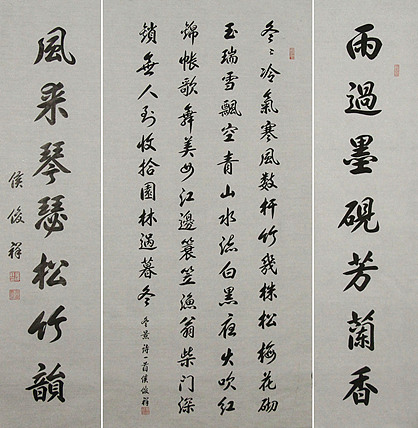 雨過墨硯芳蘭香
冬〻冷氣寒風数杆竹幾株松梅花砌
玉瑞雪飄空青山水流白黑夜火吹紅
錦帳歌舞美女江邊蓑笠漁翁柴門深
鎖無人到收拾園林過暮冬
冬景詩一首侯俊祥
風来琴瑟松竹韻
侯俊祥